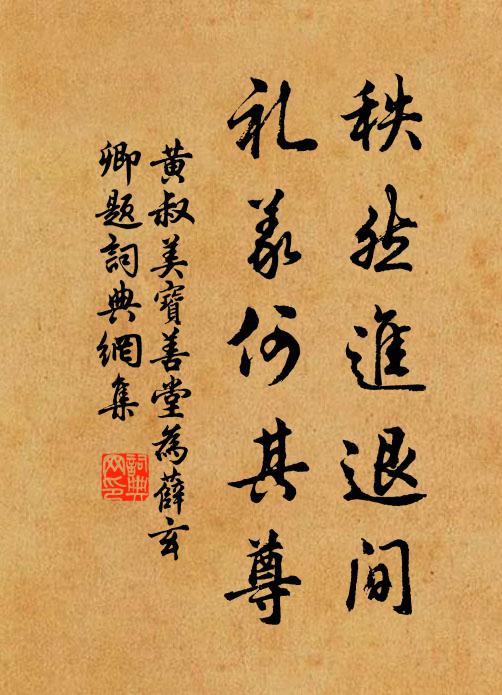 秩然進退間
礼義何其尊
黃叔美寶善堂為薛玄
卿題詞典網集
詞典網印